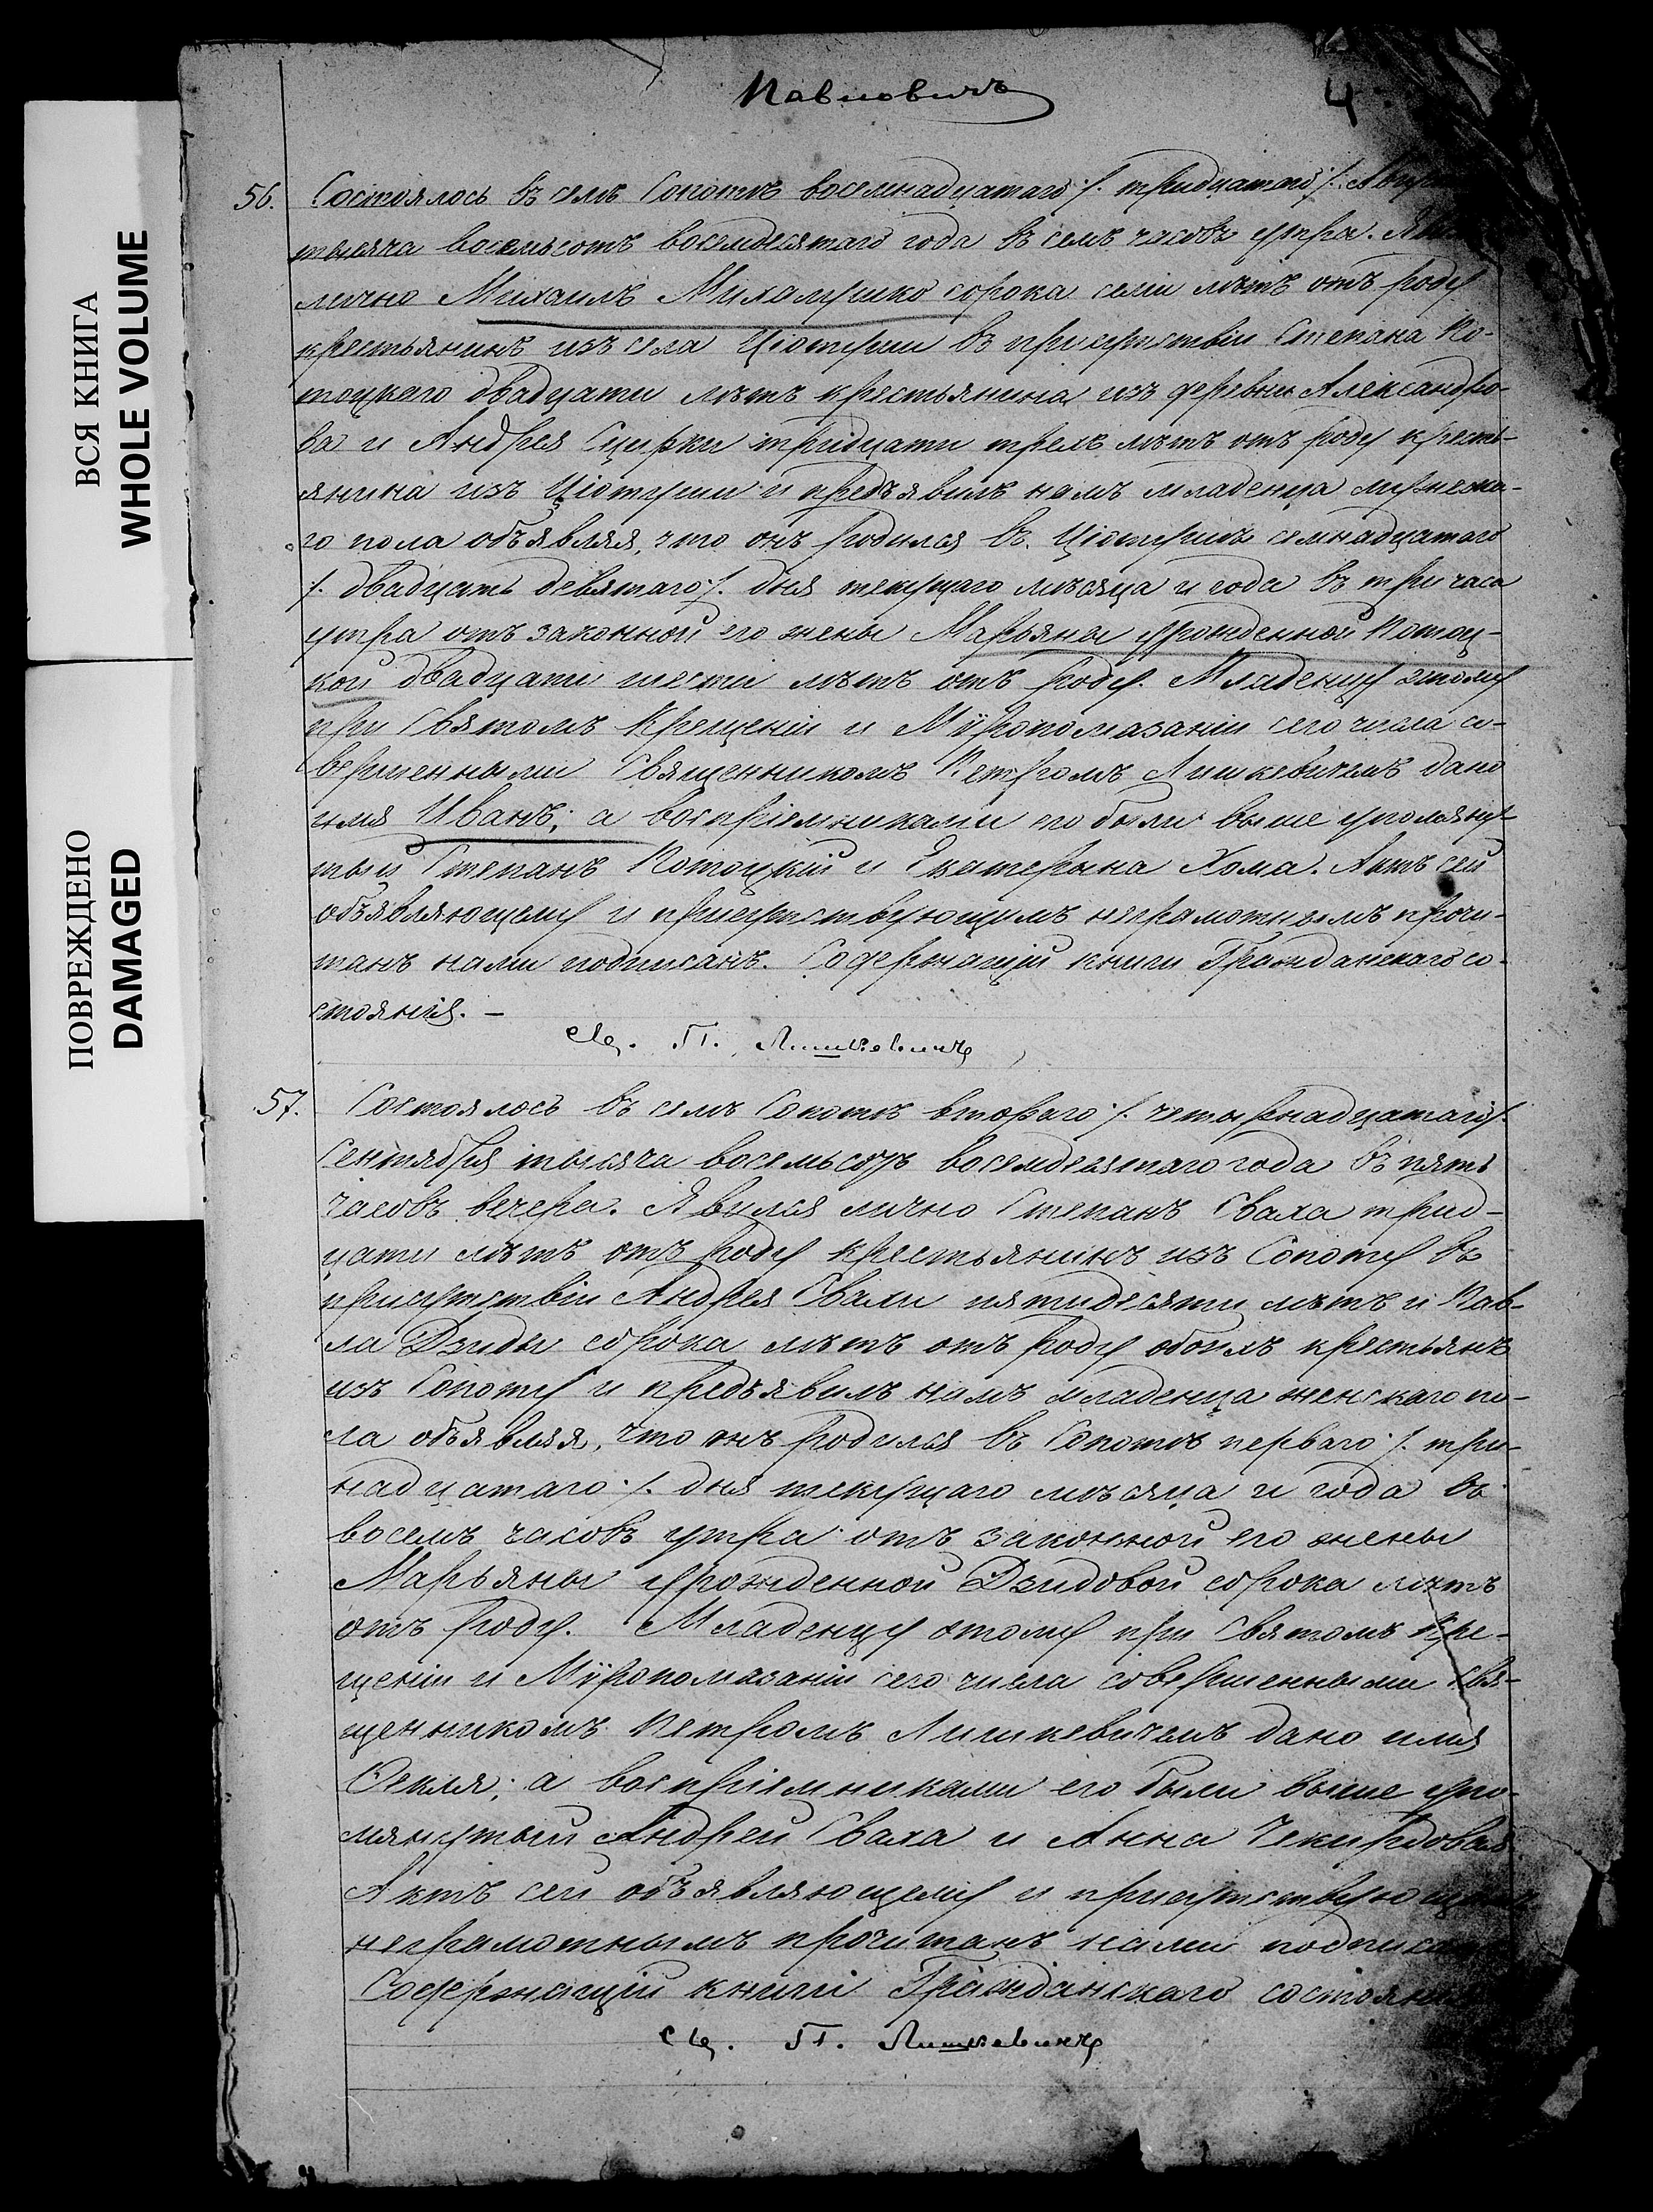 Павловичъ
4
56. Состоялось въ селѣ Сопотѣ восемнадцатаго /. тридцатаго /. Авгус
тысяча восемьсотъ восемдесятаго года въ семъ часовъ утра. Яви
лично Михаилъ Михалушко сорока семи лѣтъ отъ роду
крестьянинъ изъ села Ціотуши въ присутствіи Степана По-
тоцкаго двадцати лѣтъ крестьянина изъ деревни Александро-
ва и Андрея Сцирки тридцати трехъ лѣтъ отъ роду кресть-
янина изъ Ціотуши и предъявилъ намъ младенца мужеска-
го пола объявляя, что онъ родился въ Ціотушѣ семнадцатаго
/. двадцать девятаго /. дня текущаго мѣсяца и года въ три часа
утра отъ законной его жены Марьяны урожденной Потоц-
кой двадцати шести лѣтъ отъ роду. Младенцу этому
при Святомъ Крещеніи и Мѵропомазаніи сего числа со-
вершенными Священникомъ Петромъ Лишкевичемъ дано
имя Иванъ; а воспріемниками его были выше упомяну-
тый Степанъ Потоцкій и Екатерына Хома. Актъ сей
объявляющему и присутствующимъ неграмотнымъ прочи-
танъ нами подписанъ. Содержащій книги Гражданскаго со-
стоянія. –
Св. П. Лишкевичъ
57. Состоялось въ селѣ Сопотѣ втораго /. четырнадцатаго /.
Сентября тысяча восемьсотъ восемдесятаго года въ пять
часовъ вечера. Явился лично Степанъ Сваха трид-
цати лѣтъ отъ роду крестьянинъ изъ Сопоту въ
присутствіи Андрея Свахи пятидесяти лѣтъ и Пав-
ла Дзиды сорока лѣтъ отъ роду обоихъ крестьянъ
изъ Сопоту и предъявилъ намъ младенца женскаго по-
ла объявляя, что онъ родился въ Сопотѣ перваго /. три-
надцатаго /. дня текущаго мѣсяца и года въ
восемъ часовъ утра отъ законной его жены
Марьяны урожденной Дзидовой сорока лѣтъ
отъ роду. Младенцу этому при Святомъ Кре-
щеніи и Мѵропомазаніи сего числа совершенными Свя-
щенникомъ Петромъ Лишкевичемъ дано имя
Ѳекля; а воспріемниками его были выше упо-
мянутый Андрей Сваха и Анна
Актъ сей объявляющему и присутствующимъ
неграмотнымъ прочитанъ нами подписанъ
Содержащій книги Гражданскаго состоянія
Св. П. Лишкевичъ
ВСЯ КНИГА
WHOLE VOLUME
ПОВРЕЖДЕНО
DAMAGED